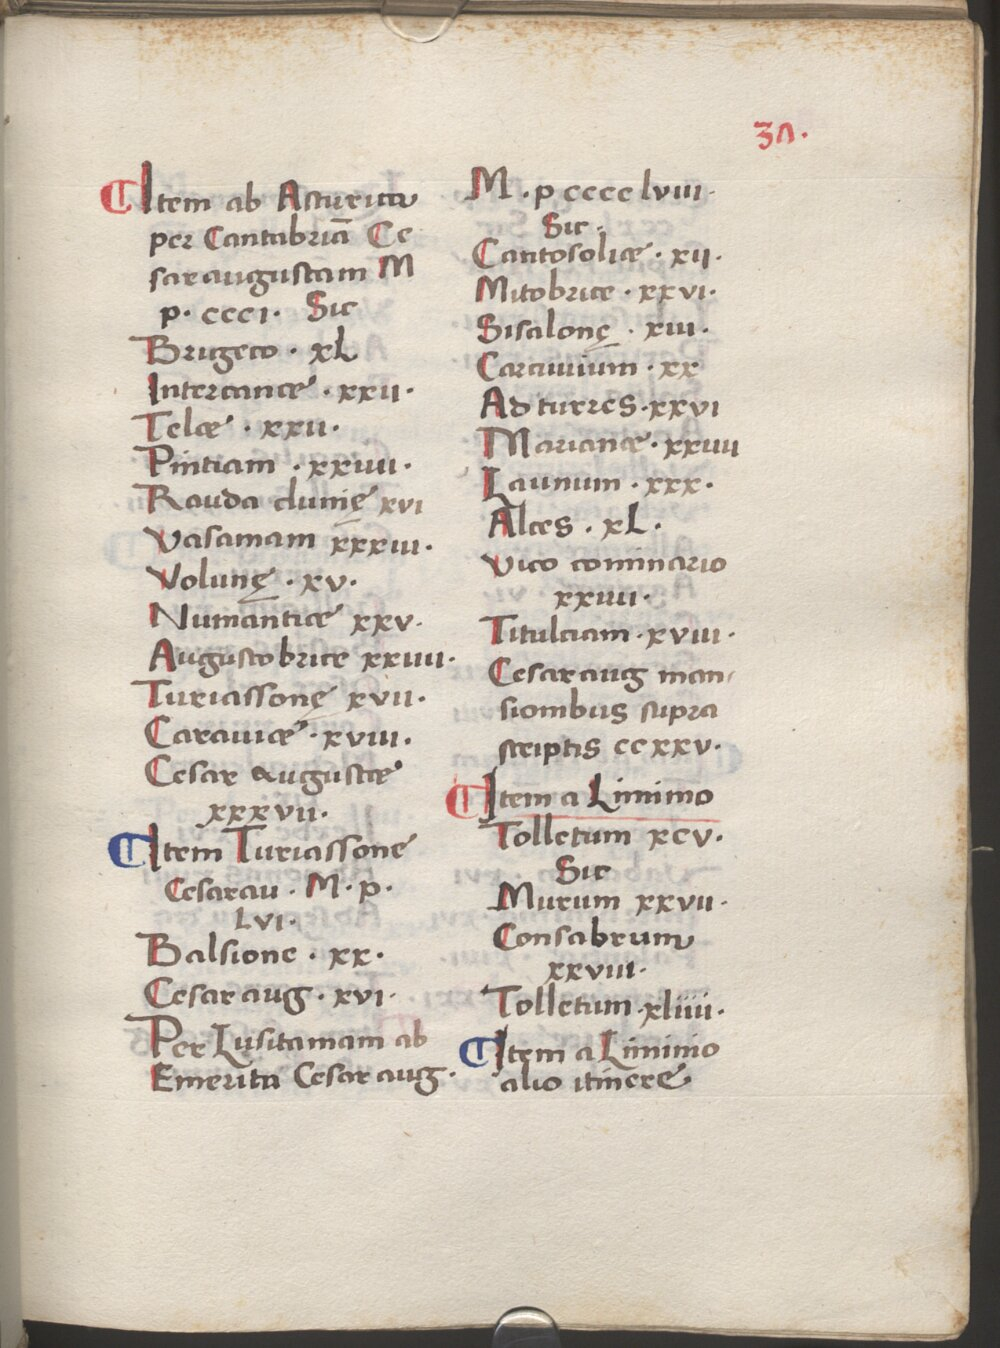 30.
Item ab Asturica
per Cantabriā Ce
saraugustam M
p. ccci. Sic
Brigeco. xL
Intercancæ. xxii.
Telæ. xxii.
Pintiam. xxiiii.
Rauda clunię xvi
Vasamam xxxiii.
Volunę. xv.
Numantiæ xxv.
Augustobrice xxiiii.
Turiassonę xvii.
Carauicæ. xviii.
Cesar augustæ
xxxvii.
Item Turiassone
Cesarau. M. p.
Lvi.
Balsione. xx.
Cesaraug. xvi.
Per Lusitaniam ab
Emerita Cesaraug.
M. p cccc lviii.
Sic.
Cantosoliæ. xii.
Mitobrice. xxvi.
Sisalonę. xiii.
Carcuuium. xx
Ad turres. xxvi
Marianæ. xxiiii
Launum. xxx.
Alces. xL.
Vico cominario
xxiiii.
Titulciam. xviii.
Cesaraug man
sionibus supra
scriptis ccxxv.
Item a Liminio
Tolletum xcv.
Sic
Murum xxvii.
Consabrum
xxviii.
Tolletum. xliiii.
Item a Liminio
alio itinere